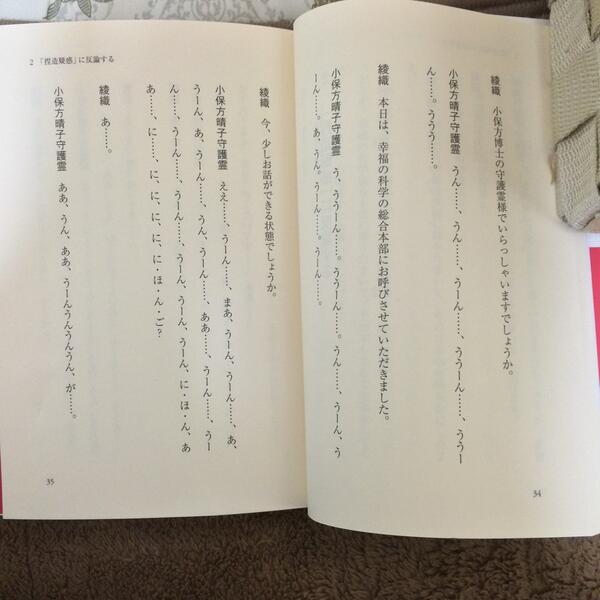 綾織　小保方博士の守護霊様でいらっしゃいますでしょうか。
小保方晴子守護霊　うん……、うん……、ううーん……、ううー
ん……。ううう……。
綾織　本日は、幸福の科学の総合本部にお呼びさせていただきました。
小保方晴子守護霊　う、ううーん……。ううーん……。うん……、うーん、う
ーん……。あ、うん。うーん……。うーん……。
34
2　「捏造疑惑」に反論する
綾織　今、少しお話ができる状態でしょうか。
小保方晴子守護霊　ええ……、うーん……、まあ、うーん、うーん……、あ、
うーん、あ、うーん……、うん、うーん……、ああ……、うーん……、うー
ん……、うーん……、うーん、うーん、うーん、に・ほ・ん、あ
あ……、に……、に、に、に、に・ほ・ん・ご？
綾織　あ……。
小保方晴子守護霊　ああ、うん、ああ、うーんうんうんうん、が……。
35